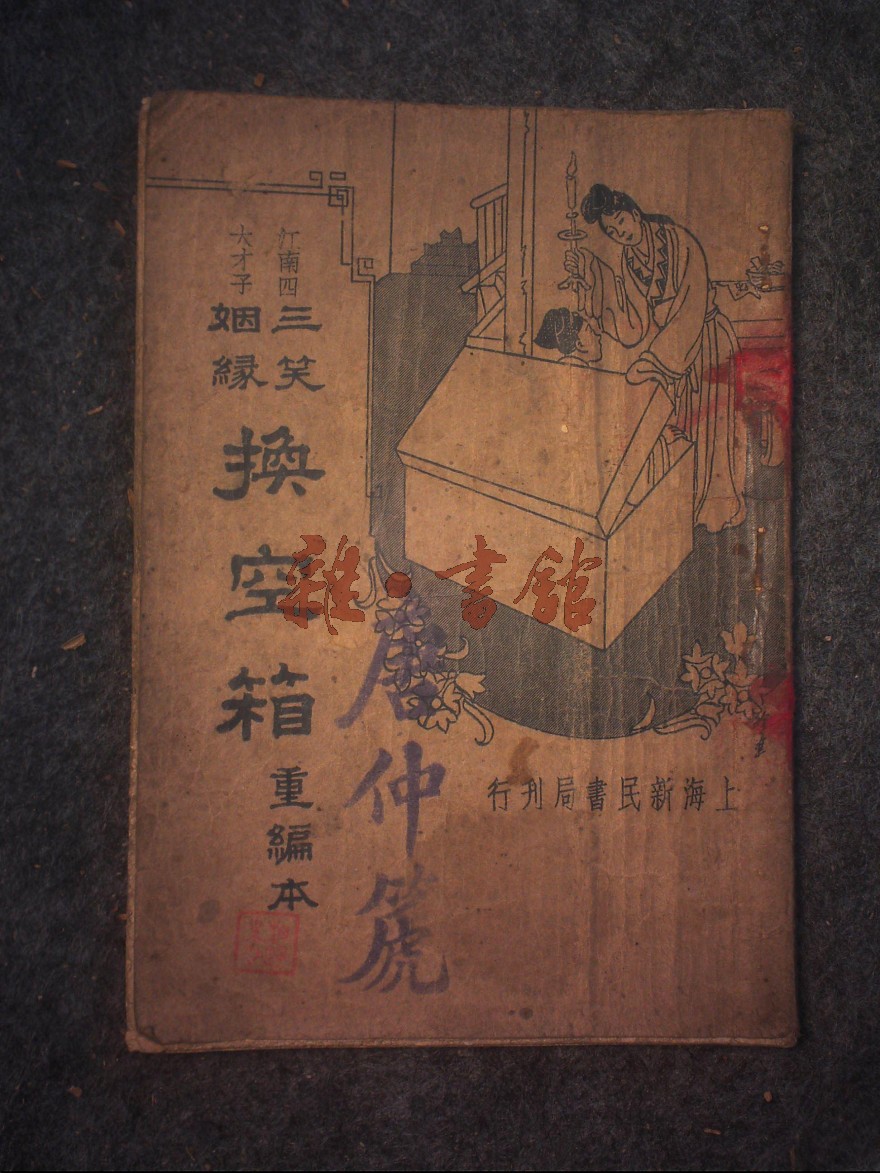 江南四
大才子
三笑
姻緣
換空箱
重編本
唐仲箎
上海新民書局刊行
雜·書館